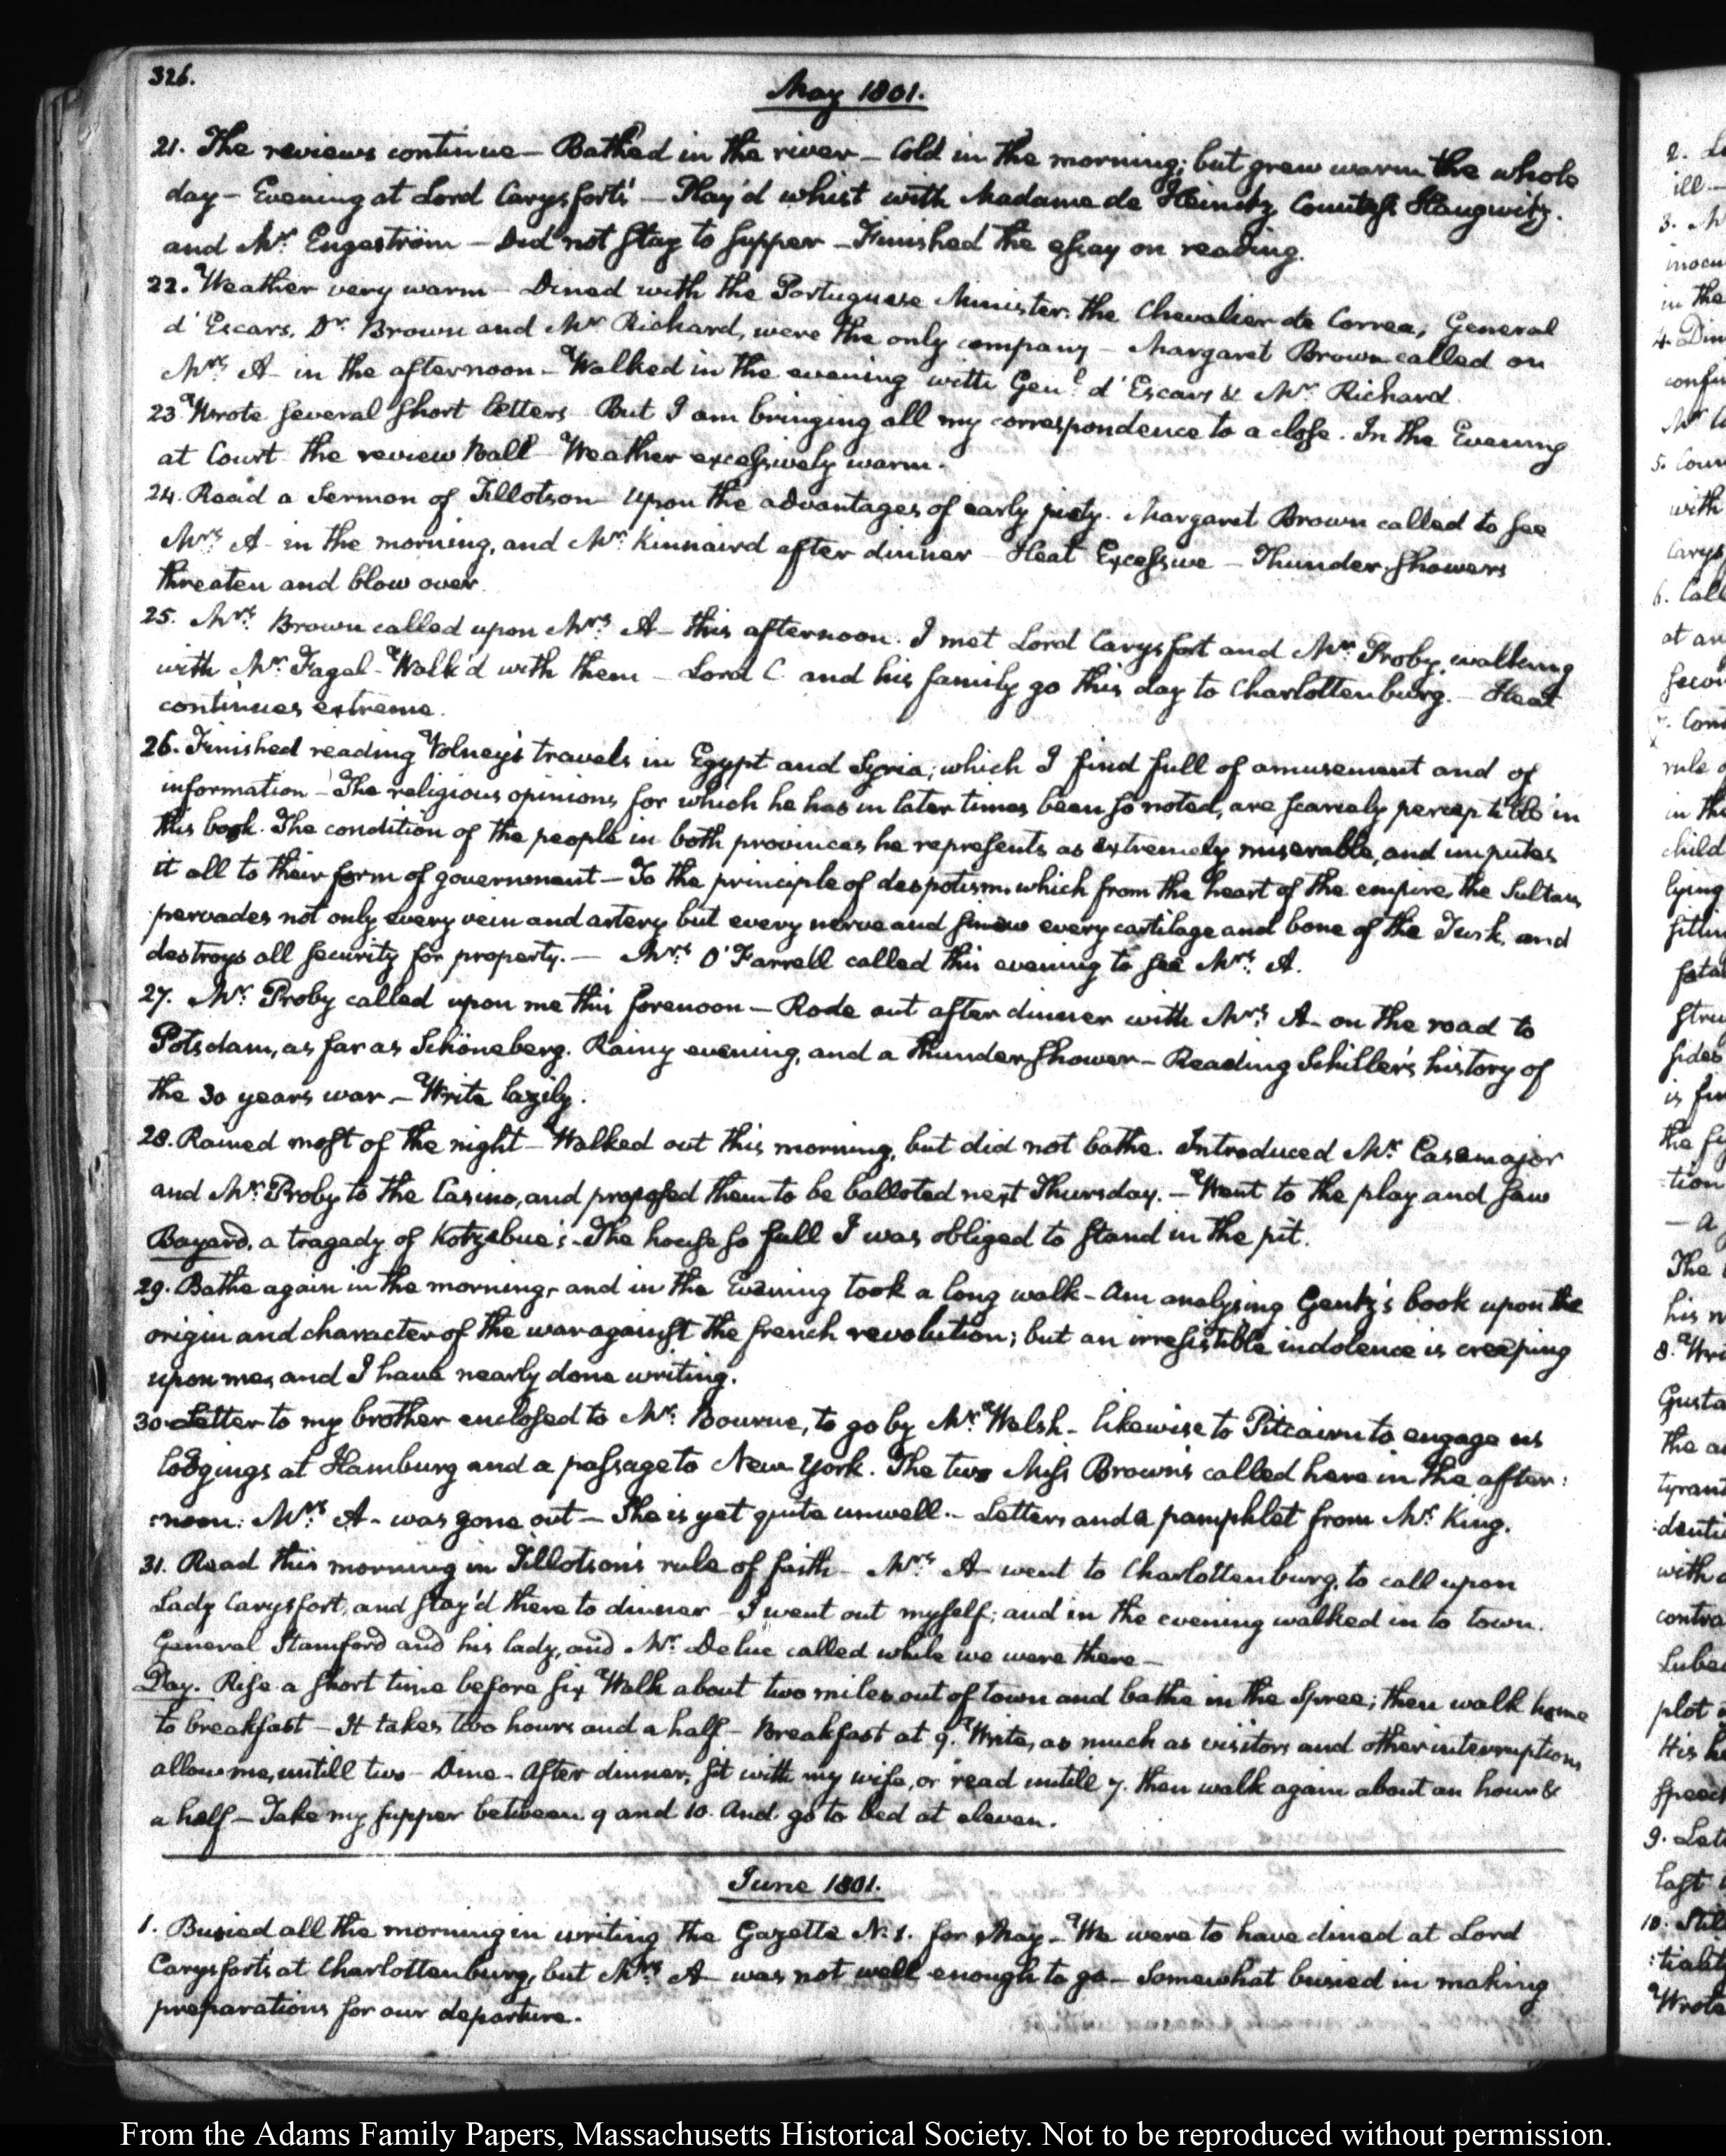 326.
May 1801.
21. The reviews continue — Bathed in the river — Cold in the morning; but grew warm the whole
day — Evening at Lord Carysfort's — Play'd whist with Madame de Heinitz, Countess Haugwitz.
and Mr. Engeström — Did not stay to supper — Finished the essay on reading.
22. Weather very warm — Dined with the Portuguese Minister, the Chevalier de Correa, General
d'Escars, Dr. Brown and Mr. Richard, were the only company — Margaret Brown called on
Mrs. A— in the afternoon — Walked in the evening with Genl. d'Escars & Mr. Richard.
23. Wrote several short letters. But I am bringing all my correspondence to a close. In the Evening
at Court the review Ball — Weather excessively warm.
24. Read a Sermon of Tillotson upon the advantages of early piety. Margaret Brown called to see
Mrs. A— in the morning, and Mr. Kinnaird after dinner — Heat Excessive — Thunder showers
threaten and blow over.
25. Mrs. Brown called upon Mrs. A— this afternoon. I met Lord Carysfort and Mr. Proby, walking
with Mr. Fagal — Walk'd with them — Lord C. and his family go this day to Charlottenburg. — Heat
continues extreme.
26. Finished reading Volney's travels in Egypt and Syria; which I find full of amusement and of
information — The religious opinions for which he has in later times been so noted, are scarcely perceptible in
this book. The condition of the people in both provinces he represents as extremely miserable, and imputes
it all to their form of government — To the principle of despotism, which from the heart of the empire, the Sultan,
pervades not only every vein and artery but every nerve and sinew every cartilage and bone of the Turk, and
destroys all security for property. — Mrs. O'Farrell called this evening to see Mrs. A.
27. Mr. Proby called upon me this forenoon — Rode out after dinner with Mrs. A— on the road to
Potsdam, as far as Schöneberg. Rainy evening, and a thunder shower — Reading Schiller's history of
the 30 years war. — Write lazily.
28. Rained most of the night — Walked out this morning, but did not bathe. Introduced Mr. Casamajor
and Mr. Proby to the Casino, and proposed them to be balloted next Thursday. — Went to the play and saw
Bayard, a tragedy of Kotzebue's — The house so full I was obliged to stand in the pit.
29. Bathe again in the morning, and in the Evening took a long walk — Am analysing Gentz's book upon the
origin and character of the war against the french revolution; but an irresistible indolence is creeping
upon me, and I have nearly done writing.
30. Letter to my brother enclosed to Mr. Bourne, to go by Mr. Welsh — likewise to Pitcairn to engage us
lodgings at Hamburg and a passage to New York. The two Miss Browns called here in the after:
:noon: Mrs. A— was gone out — She is yet quite unwell — Letters and a pamphlet from Mr. King.
31. Read this morning in Tillotson's rule of faith — Mrs. A— went to Charlottenburg, to call upon
Lady Carysfort, and stay'd there to dinner — I went out myself; and in the evening walked in to town.
General Stamford and his lady, and Mr. Deluc called while we were there —
Day. Rise a short time before six. Walk about two miles out of town and bathe in the Spree; then walk home
to breakfast — It takes two hours and a half — Breakfast at 9. Write, as much as visitors and other interruptions
allow me, untill two — Dine — After dinner, sit with my wife, or read untill 7. then walk again about an hour &
a half — Take my supper between 9 and 10. And go to bed at eleven.
June 1801.
1. Busied all the morning in writing the Gazette N. 1. for May — We were to have dined at Lord
Carysfort's at Charlottenburg, but Mrs. A— was not well enough to go — Somewhat busied in making
preparations for our departure.
From the Adams Family Papers, Massachusetts Historical Society. Not to be reproduced without permission.